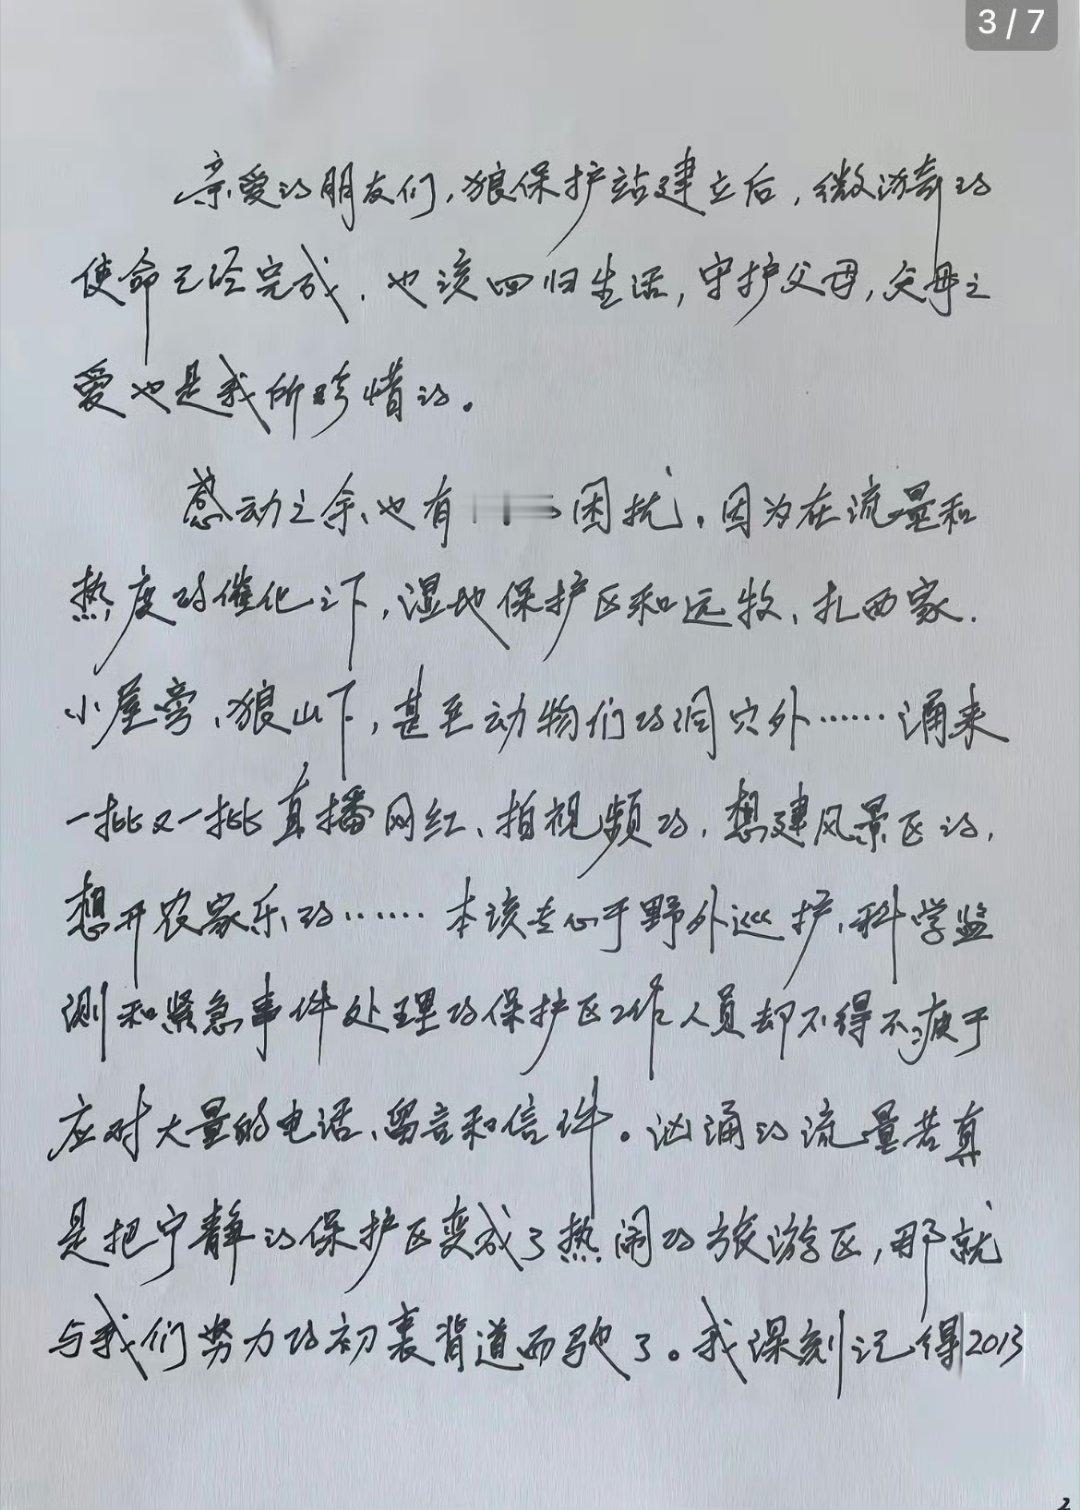 3 / 7
亲爱的朋友们，狼保护站建立后，微漪的
使命已经完成，也该回归生活，守护父母，父母之
爱也是我所珍惜的。
感动之余、也有 困扰。因为在流量和
热度的催化之下，湿地保护区和远牧、扎西家、
小屋旁、狼山下，甚至动物们的洞穴外……涌来
一批又一批直播网红、拍视频的，想建风景区的，
想开农家乐的……本该专心于野外巡护、科学监
测和紧急事件处理的保护区工作人员却不得不疲于
应对大量的电话、留言和信件。汹涌的流量若真
是把宁静的保护区变成了热闹的旅游区，那就
与我们努力的初衷背道而驰了。我深刻记得2013
2